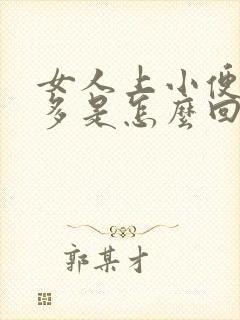 女人上小便
多是怎麼回
郭某才